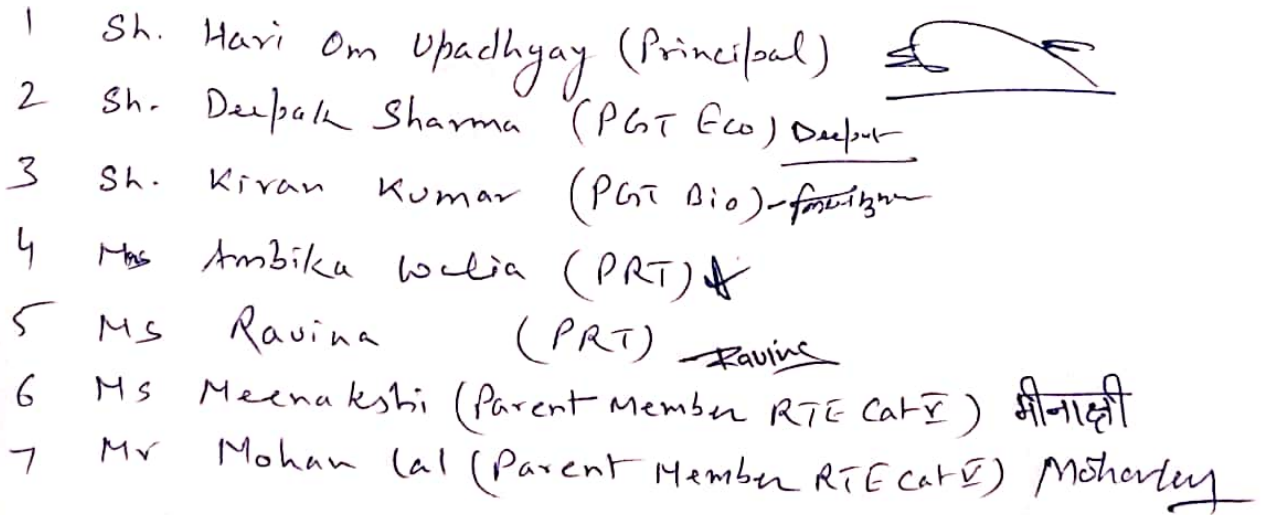 1 Sh. Hari Om Upadhyay (Principal)
2 Sh. Deepak Sharma (PGT Eco) Deepak
3 Sh. Kiran Kumar (PGT Bio)
4 Mrs Ambika Walia (PRT)
5 Ms Ravina (PRT) Ravina
6 Ms Meenakshi (Parent Member RTE Cat V) मीनाक्षी
7 Mr Mohan Lal (Parent Member RTE Cat V) Mohanlal